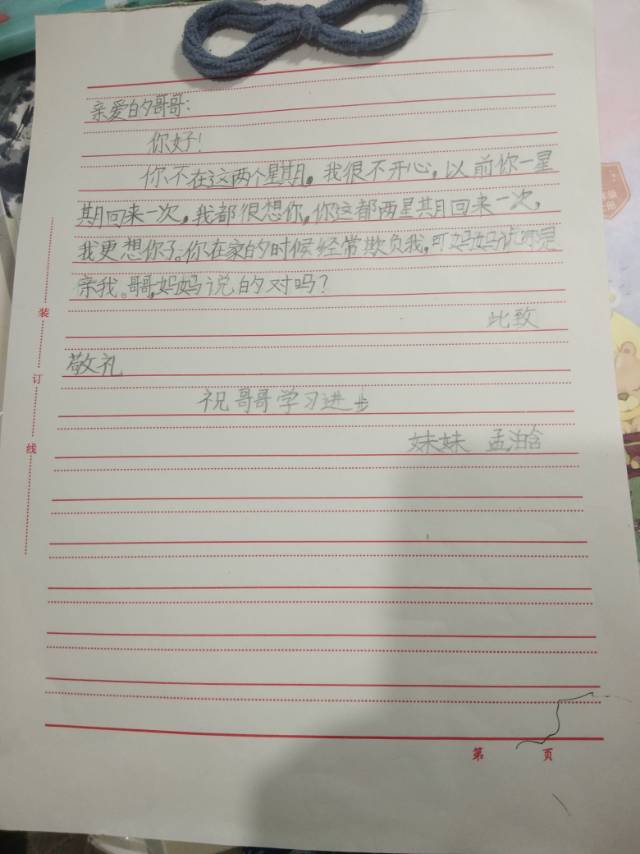 亲爱的哥哥：
你好！
你不在这两个星期。我很不开心，以前你一星
期回来一次，我都很想你，你这都两星期回来一次，
我更想你了。你在家的时候经常欺负我，可妈妈说你是
亲我。哥哥，妈妈说的对吗？
此致
敬礼
祝哥哥学习进步
妹妹 孟
装
订
线
第 页